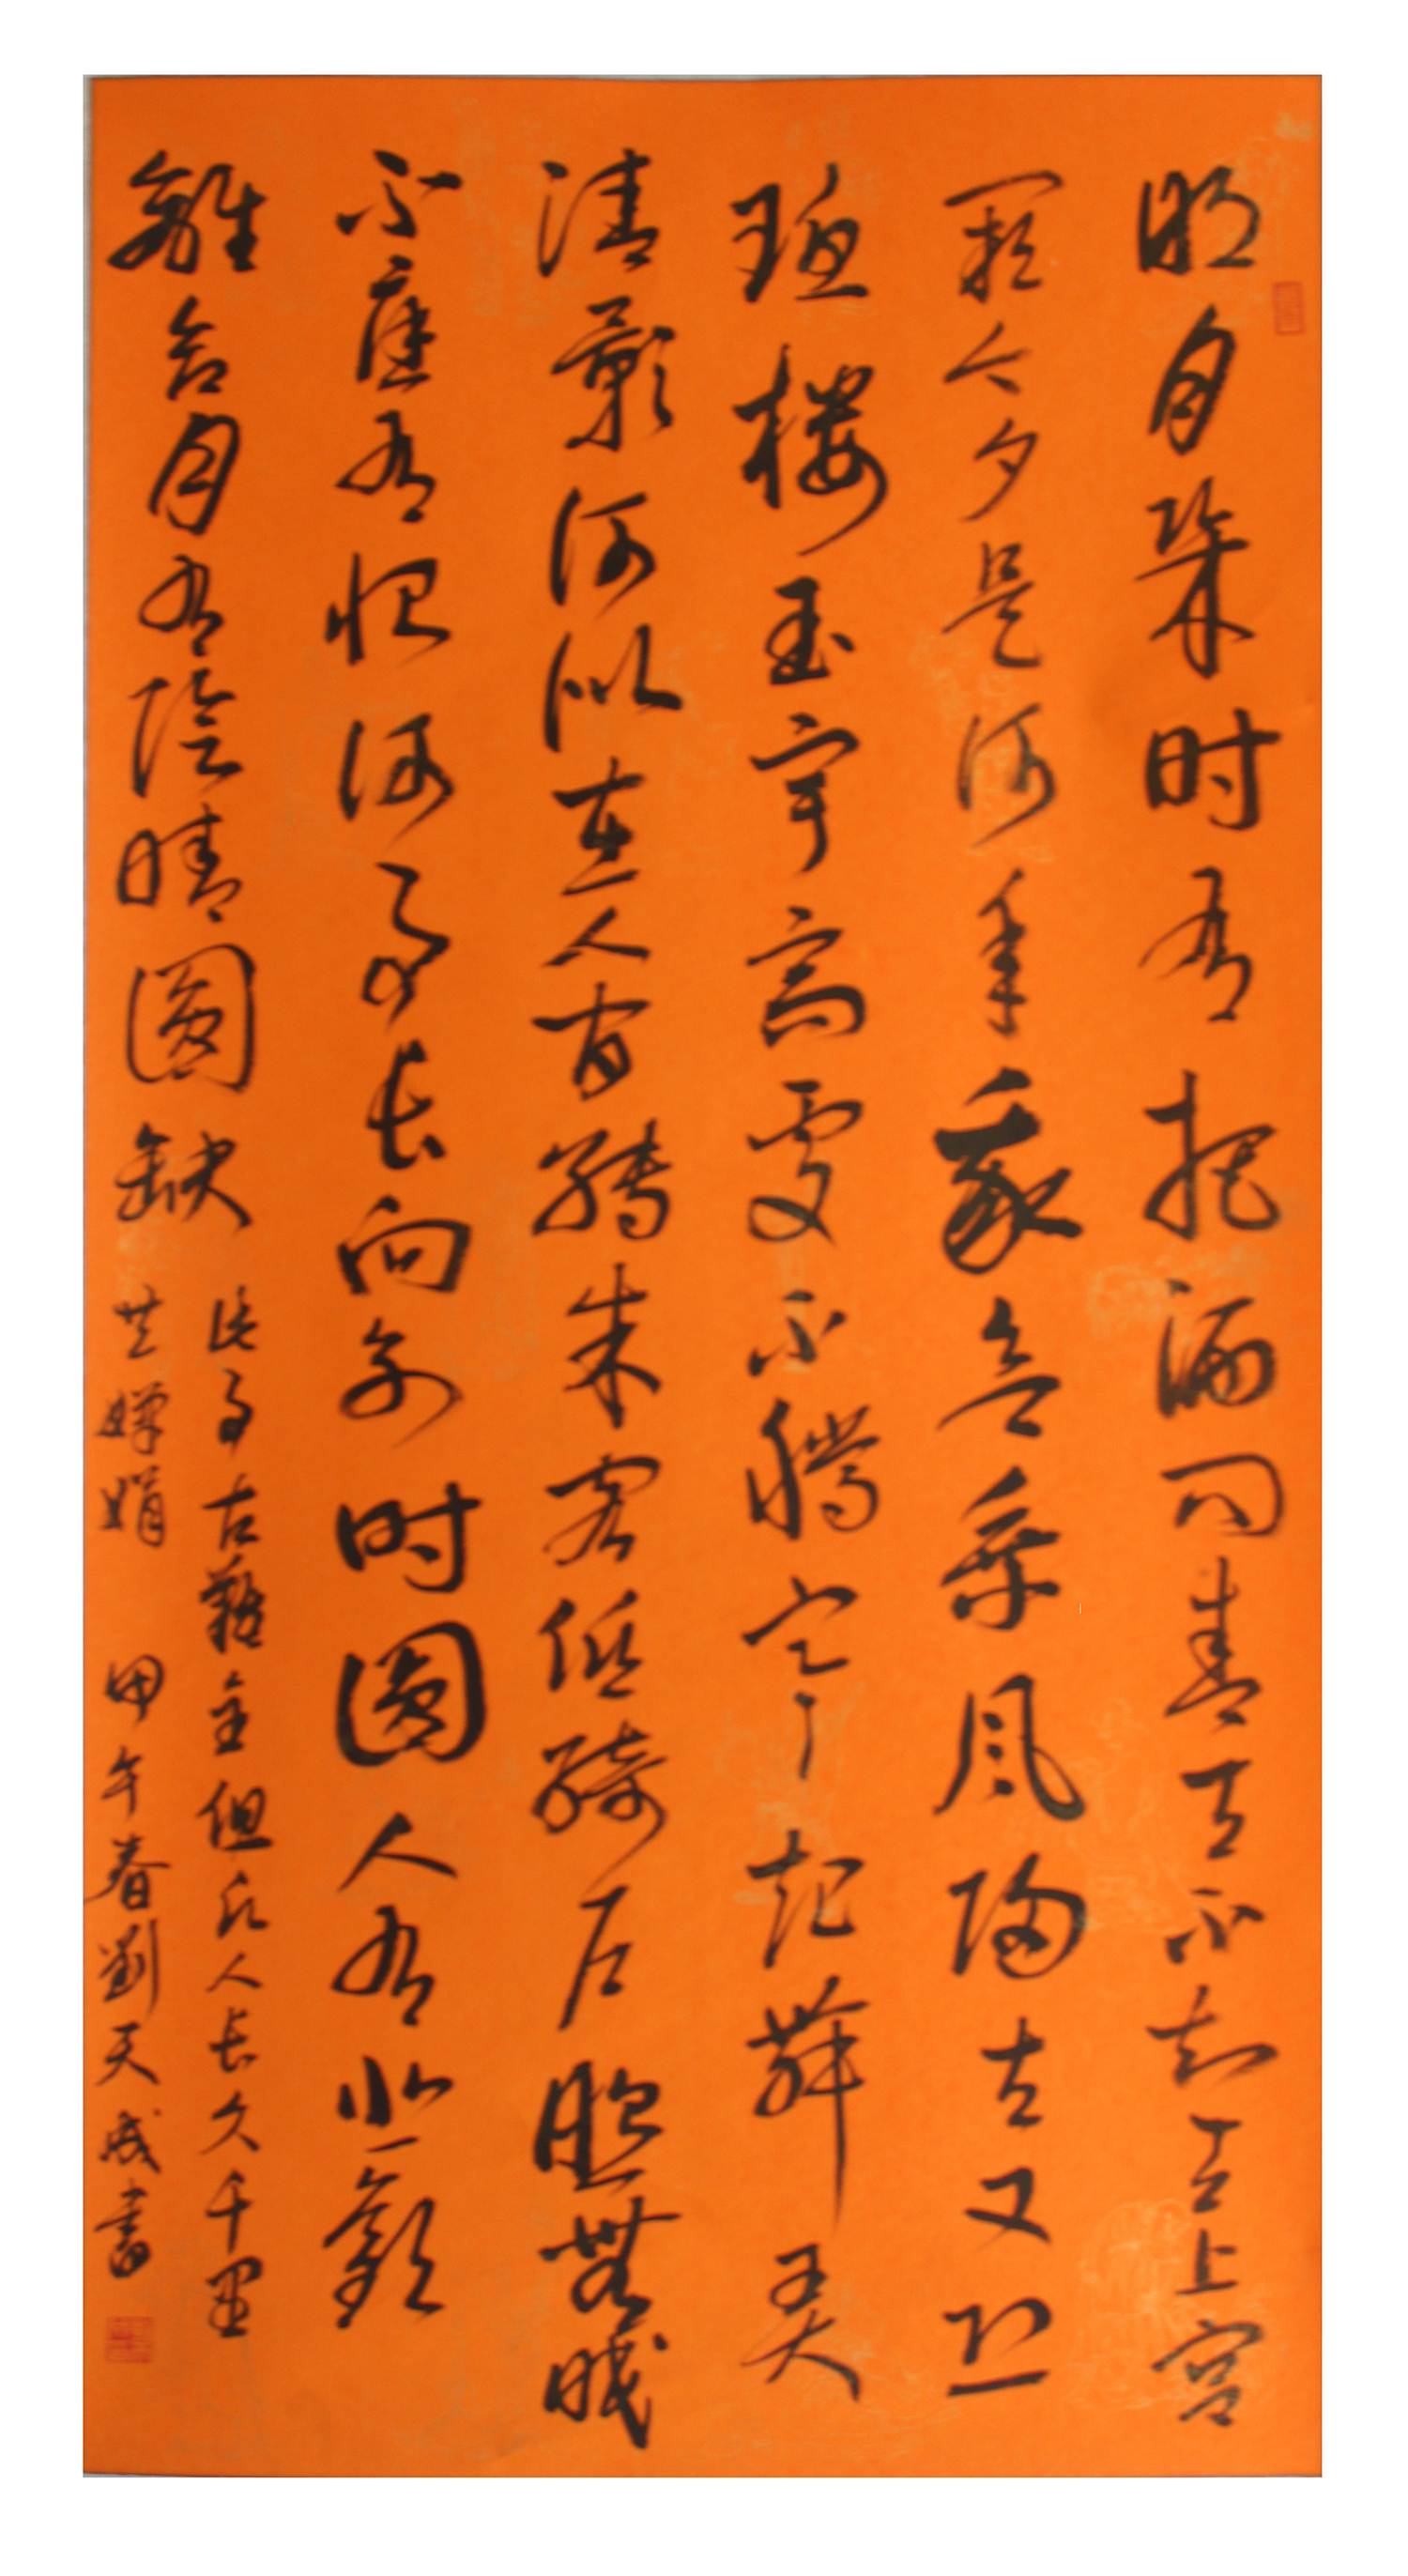 明月幾时有把酒问青天不知天上宫
闕今夕是何年我欲乘风归去又恐
瓊楼玉宇高處不勝寒起舞弄
清影何似在人间轉朱阁低綺户照無眠
不應有恨何事长向别时圓人有悲歡
離合月有陰晴圓缺
此事古難全但願人长久千里
共嬋娟 甲午春劉天成書